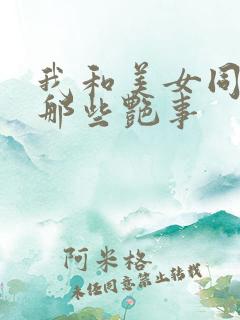 我和美女同
那些艳事
阿米格
未经同意禁止转载